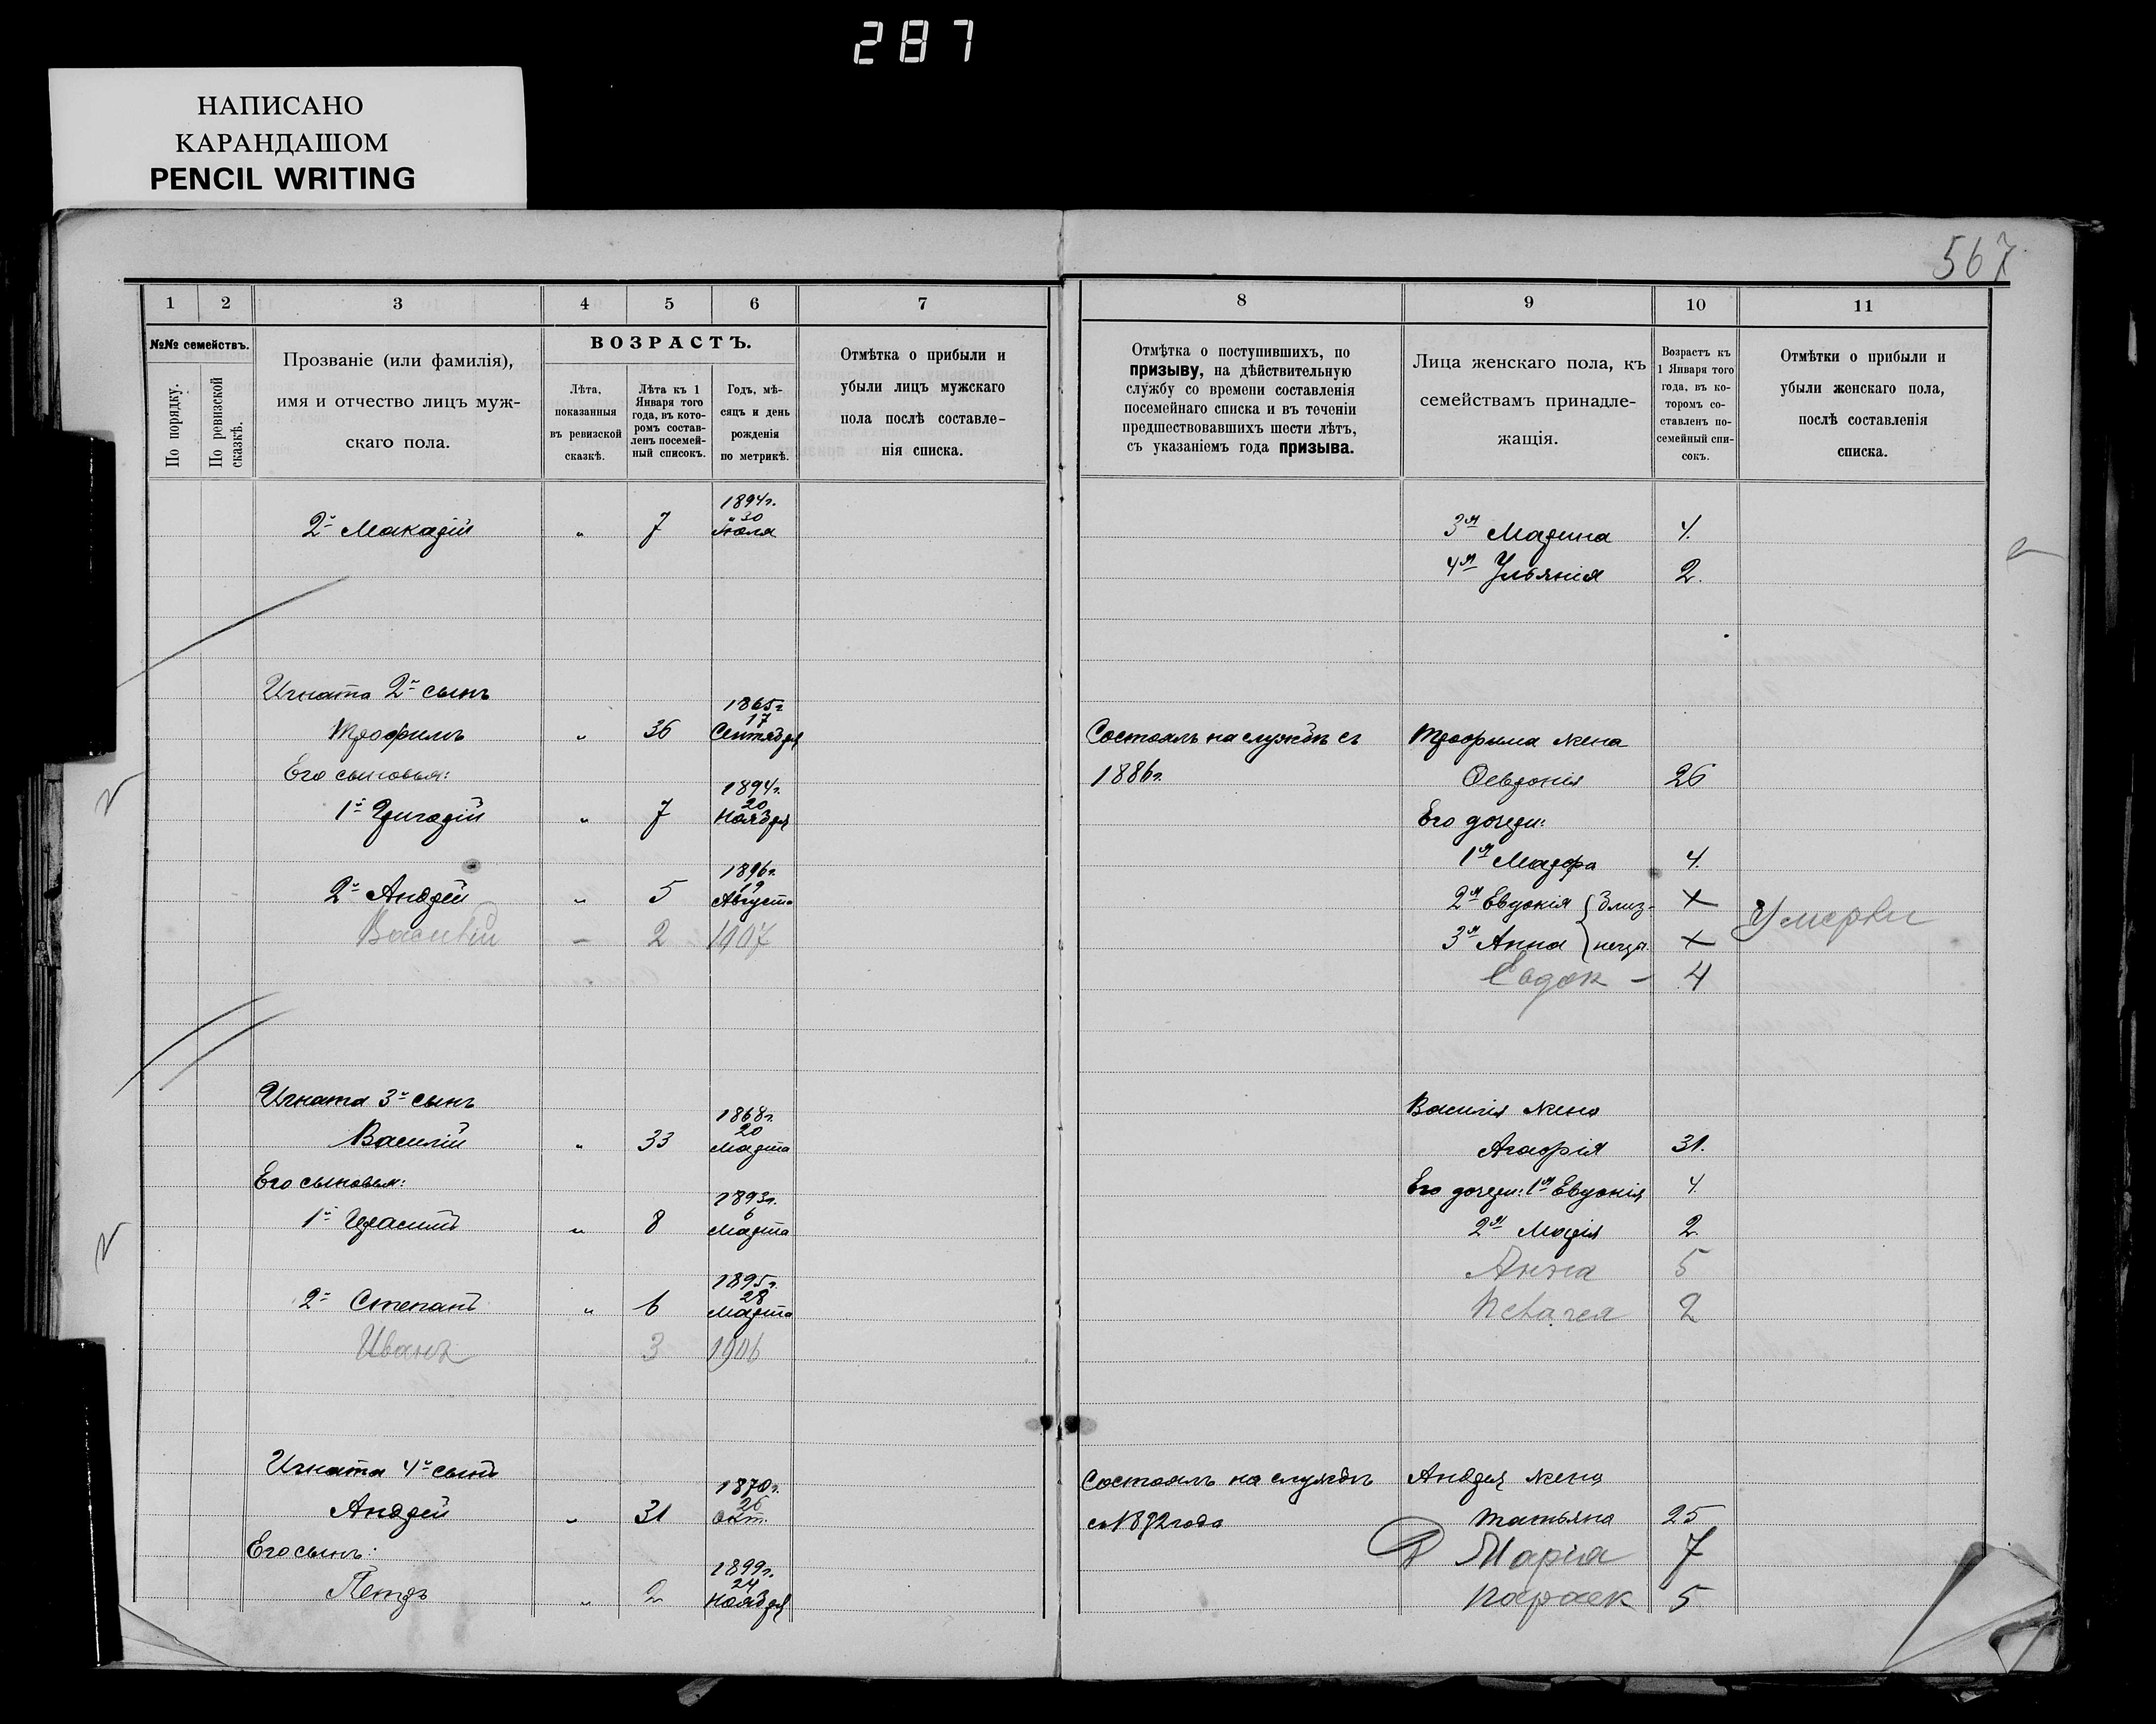 287
НАПИСАНО
КАРАНДАШОМ
PENCIL WRITING
567
1 2 3 4 5 6 7
№№ семействъ.
По порядку.
По ревизской сказкѣ.
Прозваніе (или фамилія),
имя и отчество лицъ муж-
скаго пола.
ВОЗРАСТЪ.
Лѣта,
показанныя
въ ревизской
сказкѣ.
Лѣта къ 1
Января того
года, въ кото-
ромъ состав-
ленъ посемей-
ный списокъ.
Годъ, мѣ-
сяцъ и день
рожденія
по метрикѣ.
Отмѣтка о прибыли и
убыли лицъ мужскаго
пола послѣ составле-
нія списка.
8 9 10 11
Отмѣтка о поступившихъ, по
призыву, на дѣйствительную
службу со времени составленія
посемейнаго списка и въ теченіи
предшествовавшихъ шести лѣтъ,
съ указаніемъ года призыва.
Лица женскаго пола, къ
семействамъ принадле-
жащія.
Возрастъ къ
1 Января того
года, въ ко-
торомъ со-
ставленъ по-
семейный спи-
сокъ.
Отмѣтки о прибыли и
убыли женскаго пола,
послѣ составленія
списка.
1894г.
30
2й Макарій " 7 Іюля
Игната 2й сынъ
1865г.
17
Трофимъ " 36 Сентября
Его сыновья:
1894г.
20
1й Григорій " 7 Ноября
1896г.
19
2й Андрей " 5 Августа
Василій - 2 1907
Игната 3й сынъ
1868г.
20
Василій " 33 Марта
Его сыновья:
1893г.
6
1й Герасимъ " 8 Марта
1895г.
28
2й Степанъ " 6 Марта
Иванъ 3 1906
Игната 4й сынъ
1870г.
26
Андрей " 31 Окт.
Его сынъ:
1899г.
24
Петръ " 2 Ноября
3я Марина 4.
4я Ульянія 2.
Состоялъ на службѣ съ Трофима жена
1886г. Февронія 26
Его дочери:
1я Марфа 4.
2я Евдокія } близ- ×
Умерли
3я Анна } нецы ×
Евдок - 4
Василія жена
Агафія 31.
Его дочери: 1я Евдокія 4.
2я Марія 2
Анна 5
2
Состоялъ на службѣ Андрея жена
съ 1892 года Татьяна 25
Марія 7
Параск 5